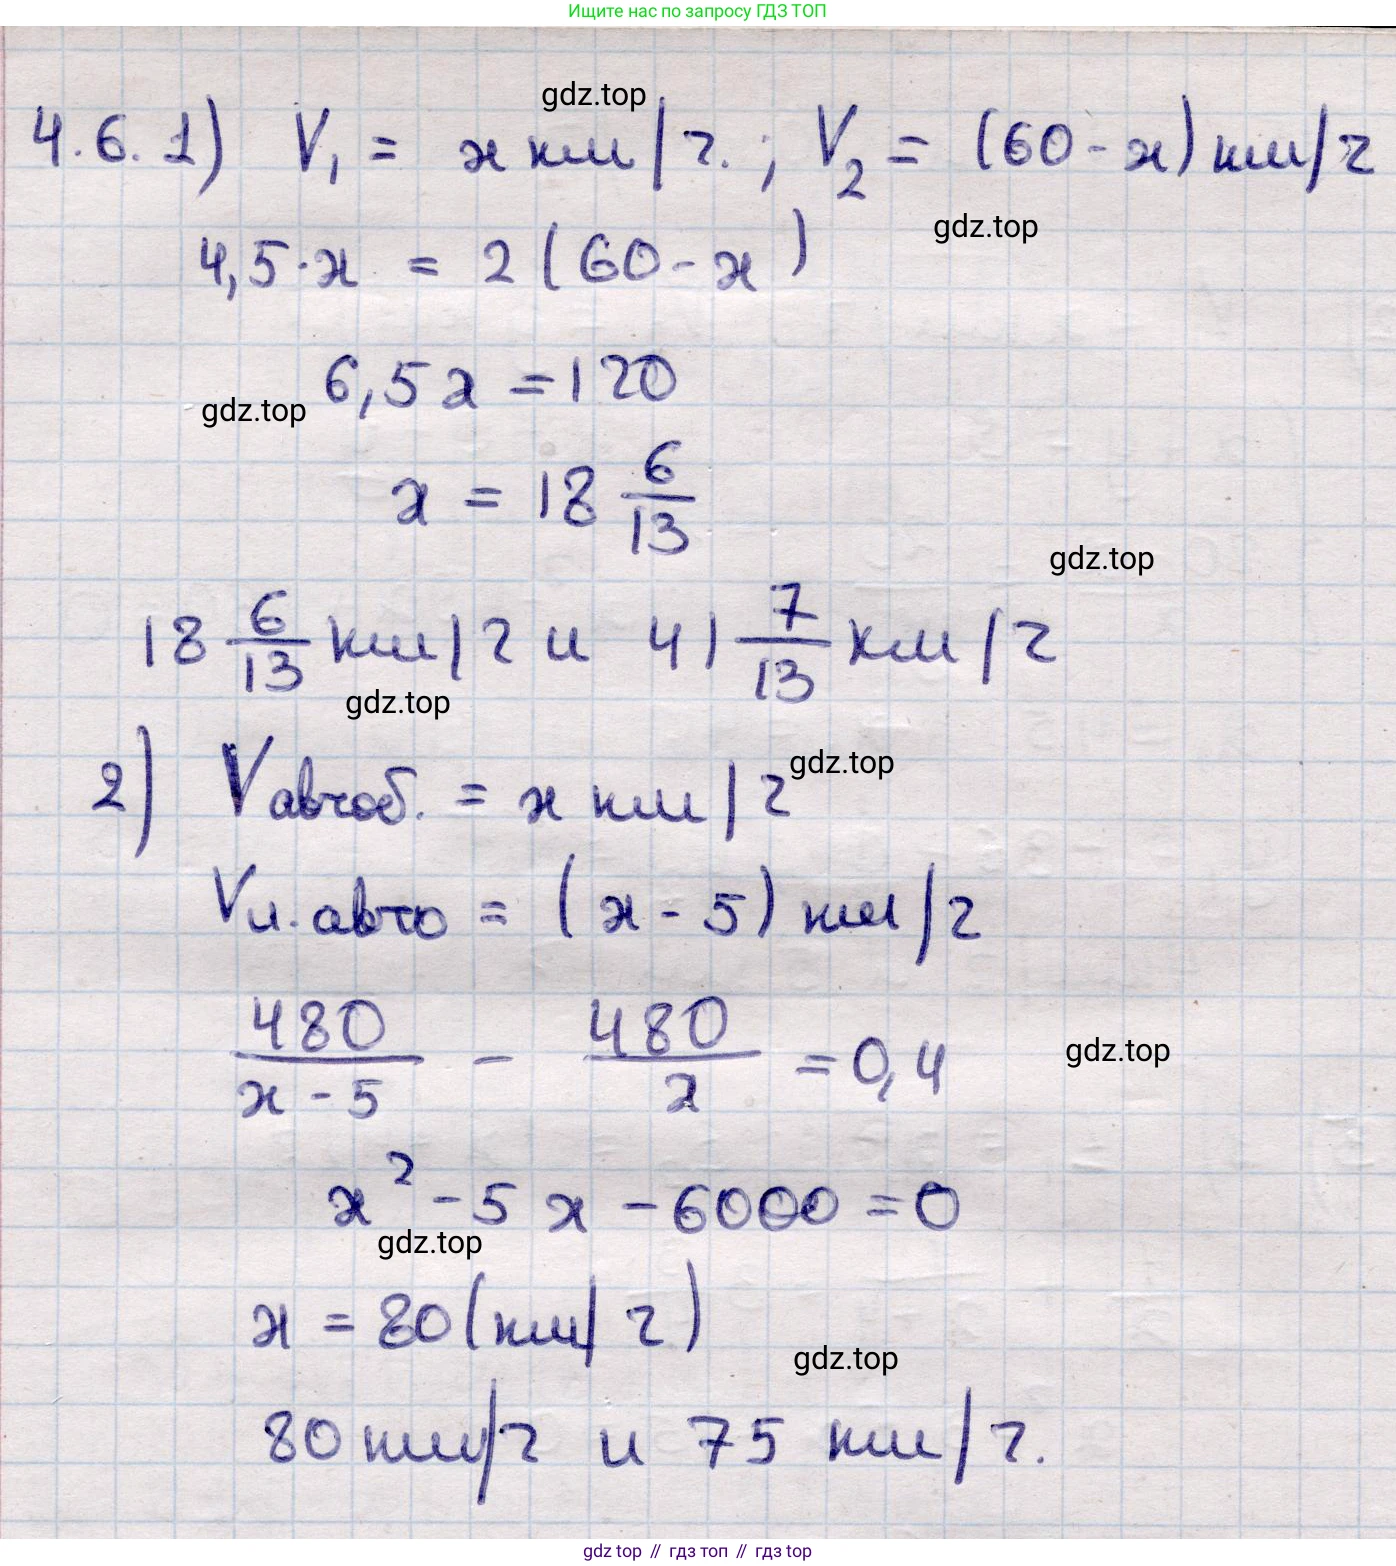 Ищите нас по запросу ГДЗ ТОП
gdz.top
4.6. 1) V₁ = x км/ч. ; V₂ = (60 - x) км/ч
gdz.top
4,5·x = 2(60 - x)
6,5x = 120
gdz.top
x = 18 6/13
gdz.top
18 6/13 км/ч и 41 7/13 км/ч
gdz.top
2) Vавтоб. = x км/ч
gdz.top
Vл. авто = (x - 5) км/ч
480/(x - 5) - 480/x = 0,4
gdz.top
x² - 5x - 6000 = 0
gdz.top
x = 80 (км/ч)
gdz.top
80 км/ч и 75 км/ч.
gdz top // гдз топ // гдз top